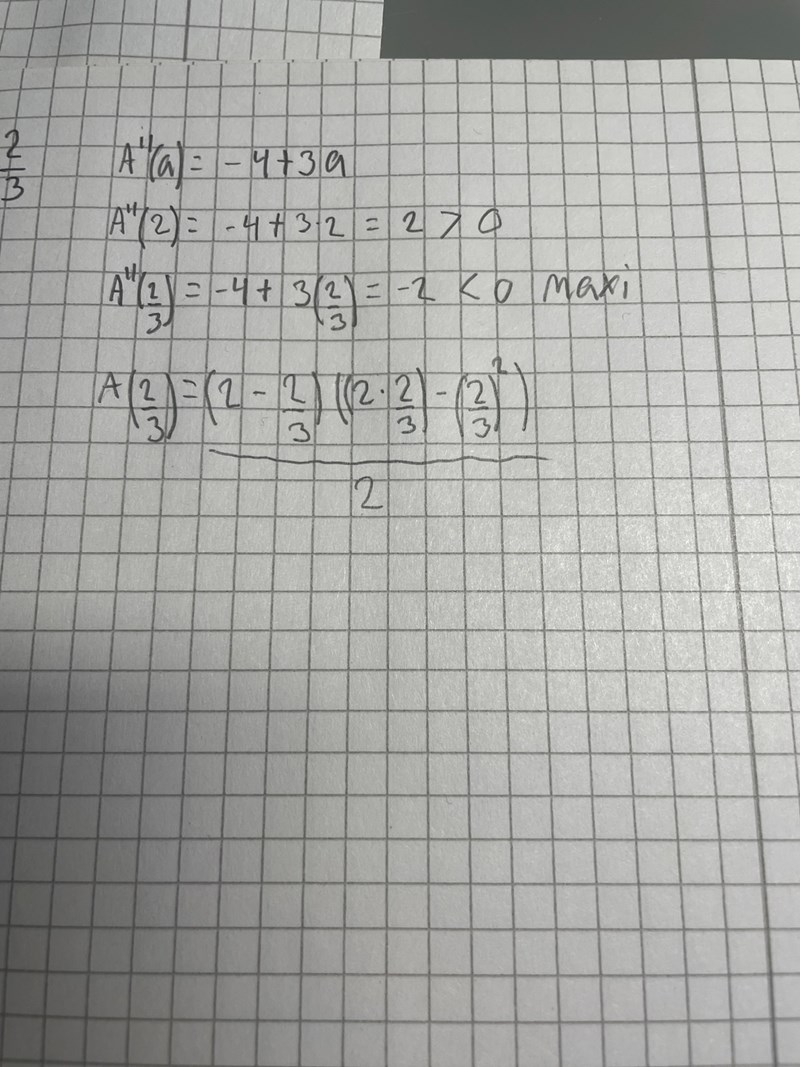 2/3
A''(a) = -4+3a
A''(2) = -4+3·2 = 2 > 0
A''(2/3) = -4+ 3(2/3) = -2 < 0 maxi
A(2/3) = (2 - 2/3)((2·2/3) - (2/3)²)
2